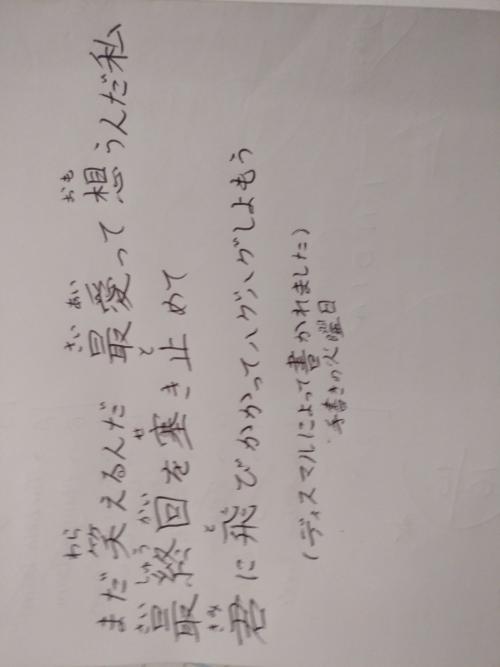 まだ笑えるんだ 最愛って想うんだ私
最終回を塞き止めて
君に飛びかかってハグハグしよもう
(ディスマルによって書かれました)
手書きの火曜日